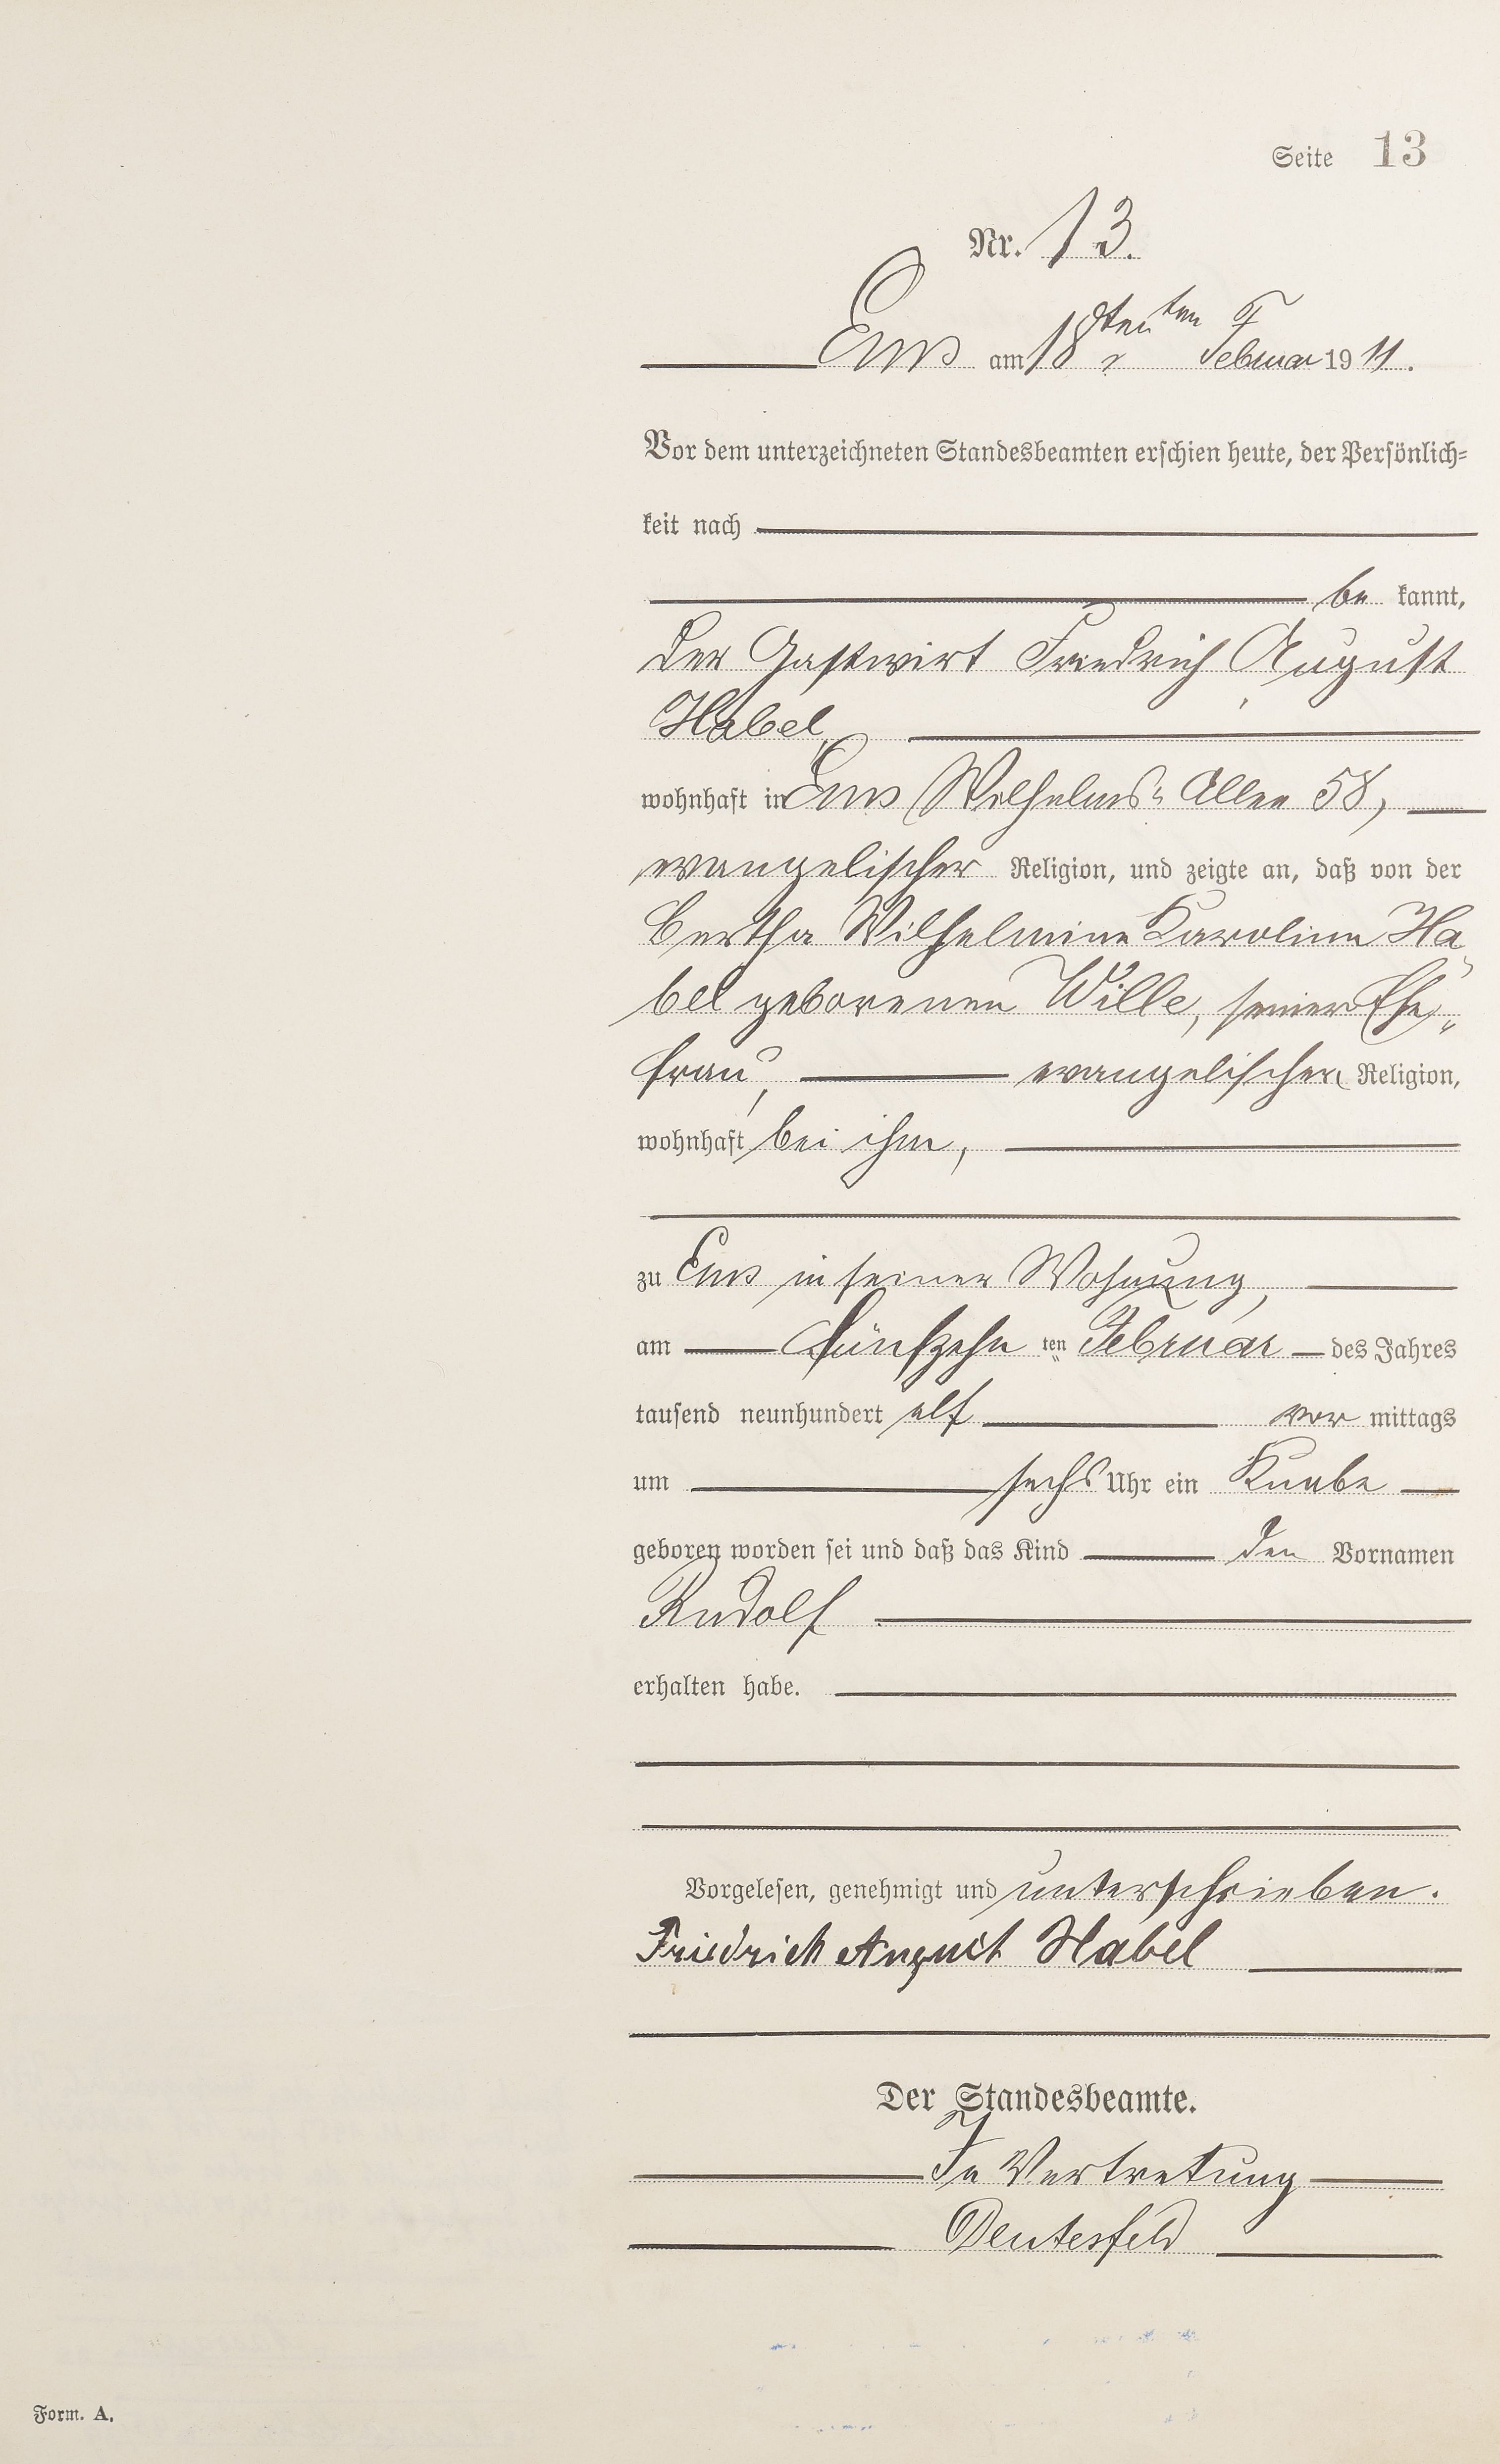 Seite 13
Nr. 13.
Ems am 18ten ten Februar 1911.
Vor dem unterzeichneten Standesbeamten erschien heute, der Persönlich-
keit nach
be kannt,
der Gastwirt Friedrich August
Habel,
wohnhaft in Ems Wilhelms-Allee 58,
evangelischer Religion, und zeigte an, daß von der
Bertha Wilhelmine Karoline Ha-
bel geborenen Wille, seiner Ehe-
frau, evangelischer Religion,
wohnhaft bei ihm,
zu Ems in seiner Wohnung,
am fünfzehn ten Februar des Jahres
tausend neunhundert elf vor mittags
um sechs Uhr ein Knabe
geboren worden sei und daß das Kind den Vornamen
Rudolf
erhalten habe.
Vorgelesen, genehmigt und unterschrieben.
Friedrich August Habel
Der Standesbeamte.
In Vertretung
Deutesfeld
Form. A.